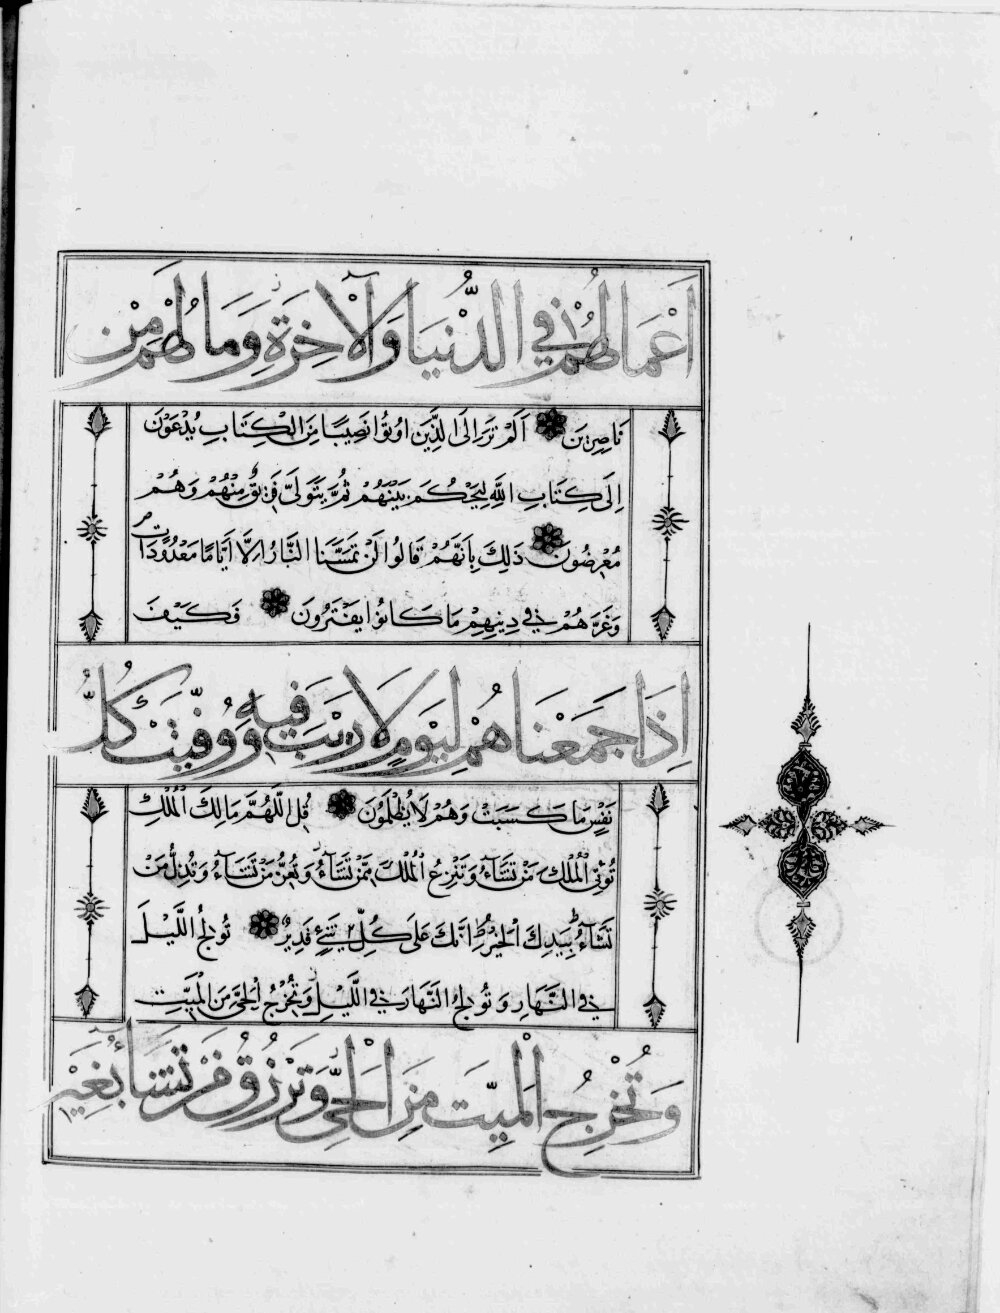 أَعْمَالُهُمْ فِي الدُّنْيَا وَالْآخِرَةِ وَمَا لَهُمْ مِنْ
نَاصِرِينَ أَلَمْ تَرَ إِلَى الَّذِينَ أُوتُوا نَصِيبًا مِنَ الْكِتَابِ يُدْعَوْنَ
إِلَى كِتَابِ اللَّهِ لِيَحْكُمَ بَيْنَهُمْ ثُمَّ يَتَوَلَّى فَرِيقٌ مِنْهُمْ وَهُمْ
مُعْرِضُونَ ذَلِكَ بِأَنَّهُمْ قَالُوا لَنْ تَمَسَّنَا النَّارُ إِلَّا أَيَّامًا مَعْدُودَاتٍ
وَغَرَّهُمْ فِي دِينِهِمْ مَا كَانُوا يَفْتَرُونَ فَكَيْفَ
إِذَا جَمَعْنَاهُمْ لِيَوْمٍ لَا رَيْبَ فِيهِ وَوُفِّيَتْ كُلُّ
نَفْسٍ مَا كَسَبَتْ وَهُمْ لَا يُظْلَمُونَ قُلِ اللَّهُمَّ مَالِكَ الْمُلْكِ
تُؤْتِي الْمُلْكَ مَنْ تَشَاءُ وَتَنْزِعُ الْمُلْكَ مِمَّنْ تَشَاءُ وَتُعِزُّ مَنْ تَشَاءُ وَتُذِلُّ مَنْ
تَشَاءُ بِيَدِكَ الْخَيْرُ ط إِنَّكَ عَلَى كُلِّ شَيْءٍ قَدِيرٌ تُولِجُ اللَّيْلَ
فِي النَّهَارِ وَتُولِجُ النَّهَارَ فِي اللَّيْلِ وَتُخْرِجُ الْحَيَّ مِنَ الْمَيِّتِ
وَتُخْرِجُ الْمَيِّتَ مِنَ الْحَيِّ وَتَرْزُقُ مَنْ تَشَاءُ بِغَيْرِ